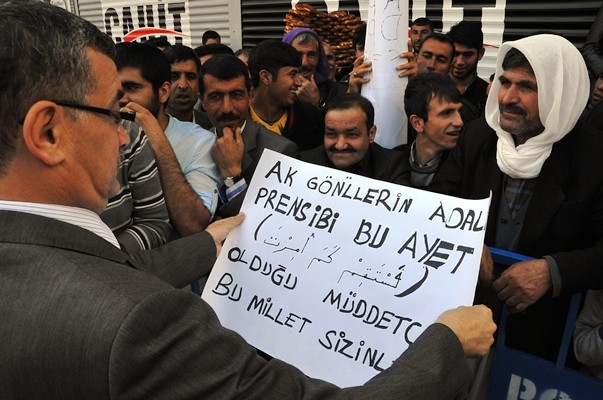 CAHİT
AK GÖNÜLLERİN ADAL
PRENSİBİ BU AYET
(فَسْتَقِمْ كَمَ أُمِرْتَ)
OLDUĞU MÜDDETÇ
BU MİLLET SİZİNL
PO